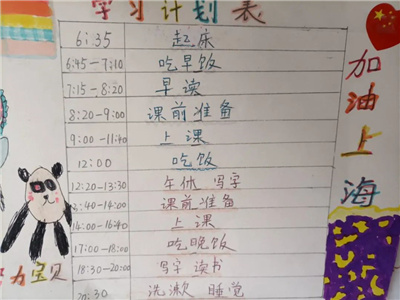 学习计划表
6:35 起床
6:45-7:10 吃早饭
7:15-8:20 早读
8:20-9:00 课前准备
9:00-11:40 上课
12:00 吃饭
12:20-13:30 午休 写字
:40-14:00 课前准备
14:00-16:40 上课
17:00-18:00 吃晚饭
18:30-20:00 写字 读书
20:30 洗漱 睡觉
加油上海
力宝贝